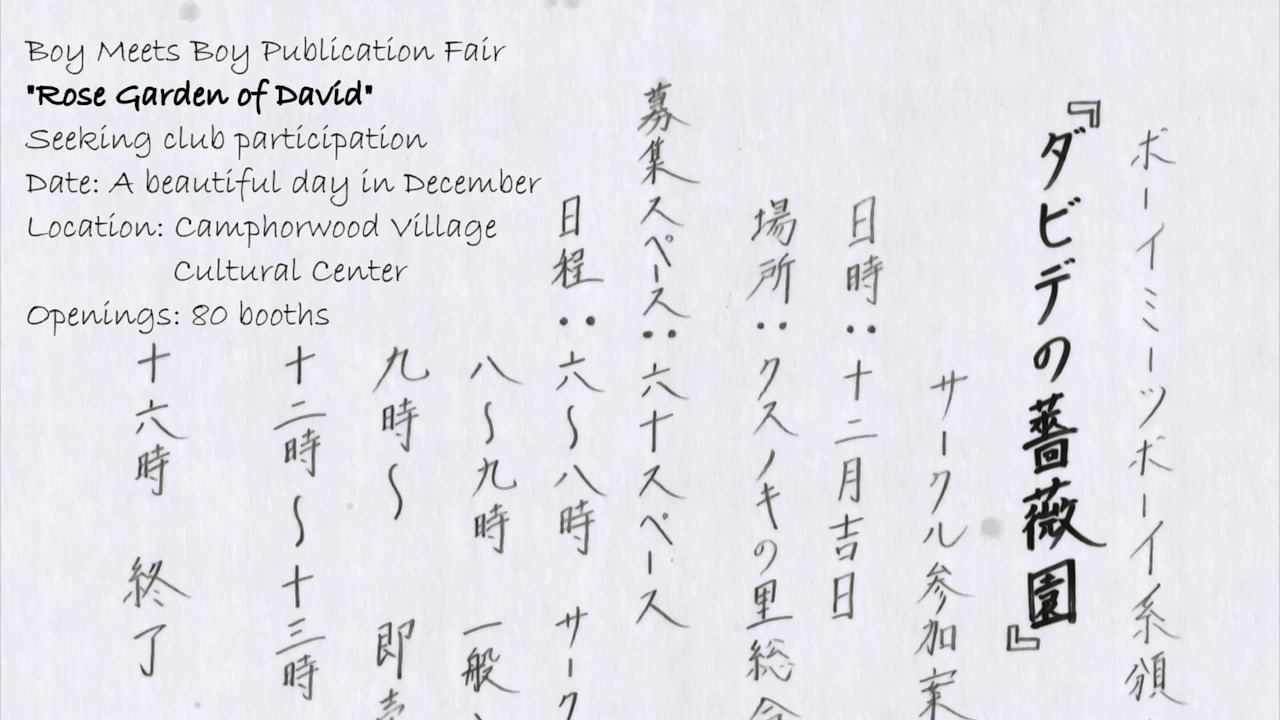 Boy Meets Boy Publication Fair
"Rose Garden of David"
Seeking club participation
Date: A beautiful day in December
Location: Camphorwood Village
Cultural Center
Openings: 80 booths
ボーイミーツボーイ系頒
『ダビデの薔薇園』
サークル参加案
日時：十二月吉日
場所：クスノキの里総合
募集スペース：六十スペース
日程：六〜八時 サーク
八〜九時 一般
九時〜 即売
十二時〜十三時
十六時 終了